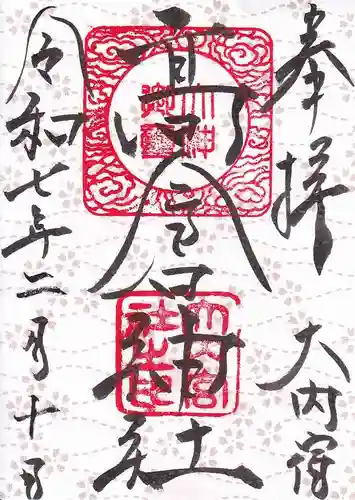 奉拝
大内宿
高倉神社
令和七年二月十日